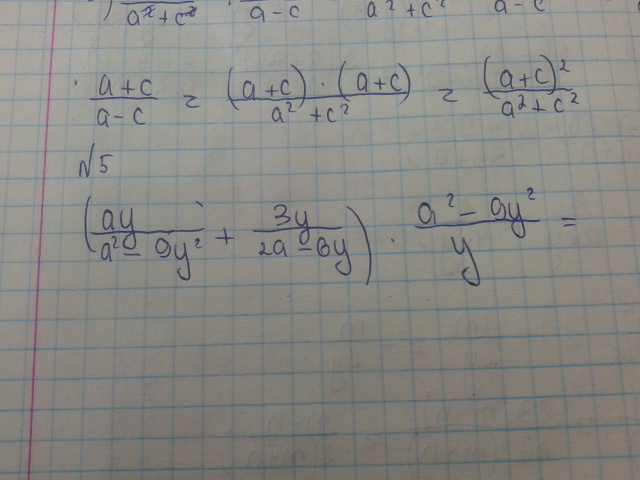 a² + c² a - c a² + c² a - c
(a + c)/(a - c) = ((a + c) · (a + c))/(a² + c²) = (a + c)²/(a² + c²)
№5
(ay/(a² - 9y²) + 3y/(2a - 6y)) · (a² - 9y²)/y =